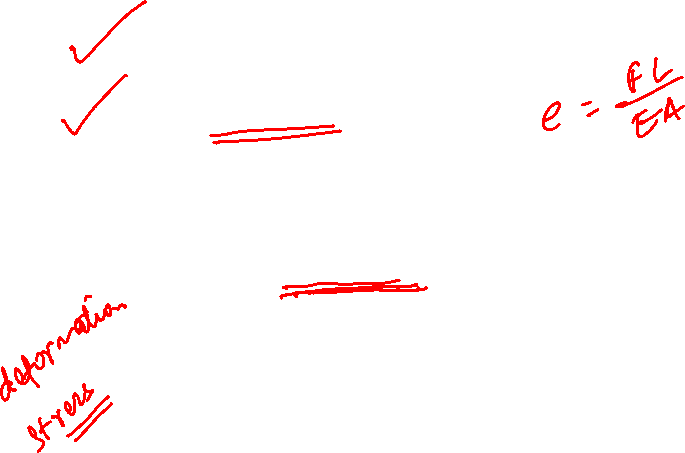 e = FL/EA
deformation
stress